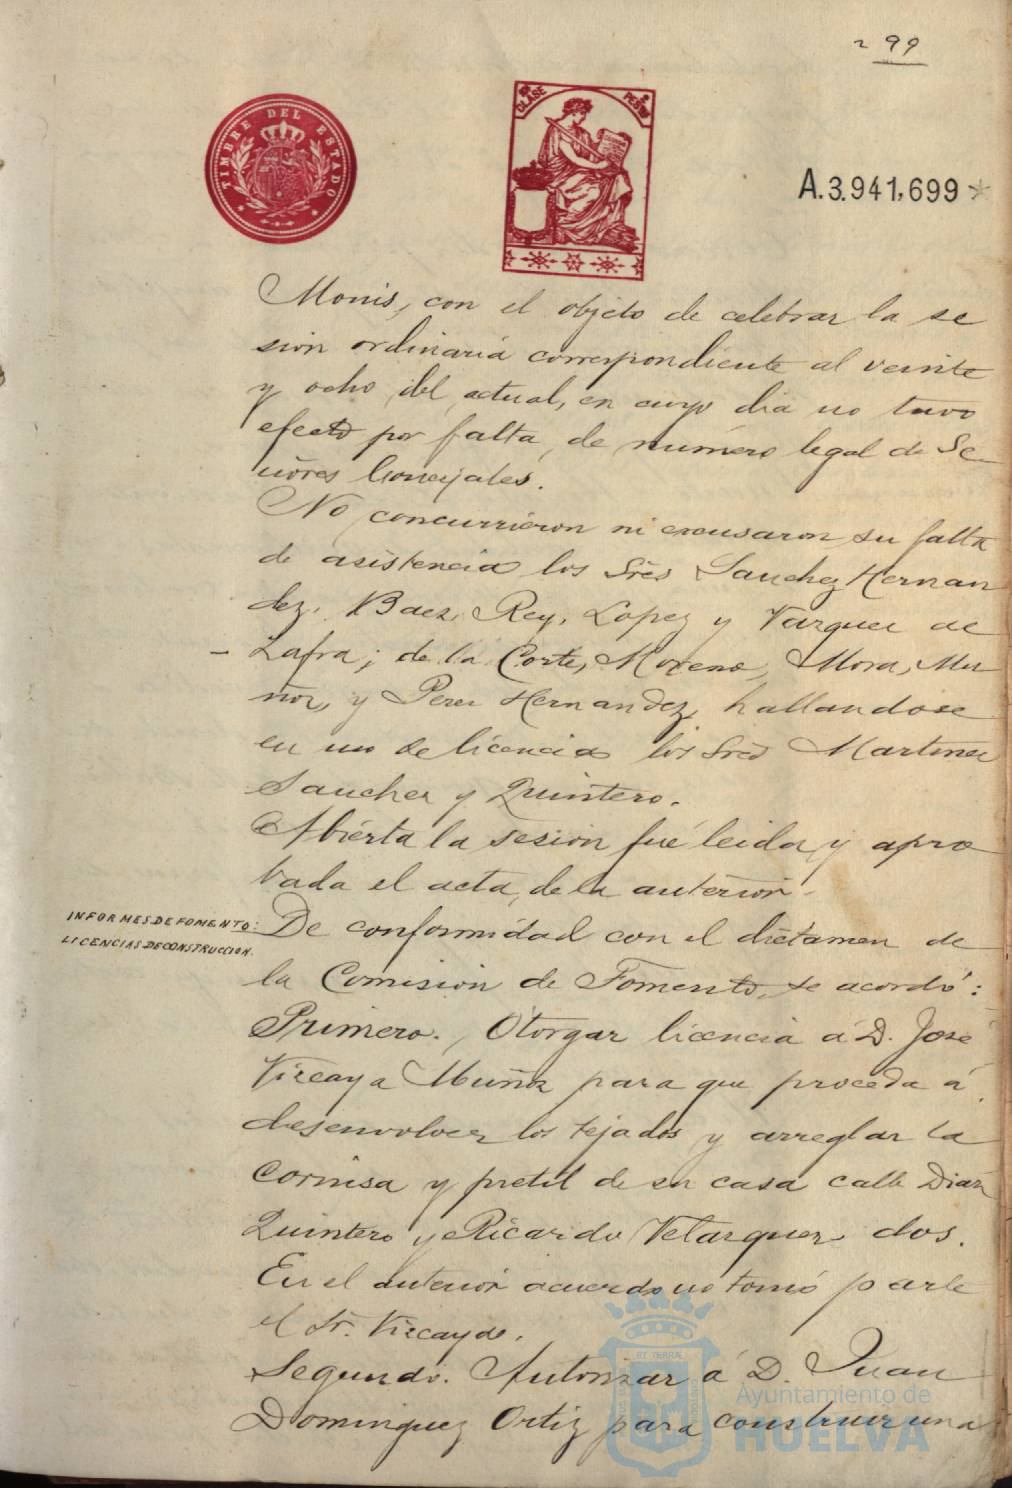 299
TIMBRE DEL ESTADO
CLASE
A.3.941,699
Monis, con el objeto de celebrar la se
sion ordinaria correspondiente al veinte
y ocho del actual, en cuyo dia no tuvo
efecto por falta de número legal de Se
ñores Concejales.
No concurrieron ni excusaron su falta
de asistencia los Sres Sanchez Hernan
dez, Baez, Rey, Lopez y Vazquez de
Zafra; de la Corte, Moreno, Mora, Mu
ñoz, y Perez Hernandez, hallandose
en uso de licencia los Sres Martinez
Sanchez y Quintero.
Abierta la sesion fué leida y apro
bada el acta de la anterior.
INFORMES DE FOMENTO:
LICENCIAS DE CONSTRUCCION.
De conformidad con el dictamen de
la Comision de Fomento, se acordó:
Primero. Otorgar licencia á D. José
Vizcaya Muñoz para que proceda á
desenvolver los tejados y arreglar la
cornisa y pretil de su casa calle Diaz
Quintero y Ricardo Velazquez dos.
En el anterior acuerdo no tomó parte
el Sr. Vizcaya.
Segundo. Autorizar á D. Juan
Dominguez Ortiz para construir una
Ayuntamiento de
HUELVA